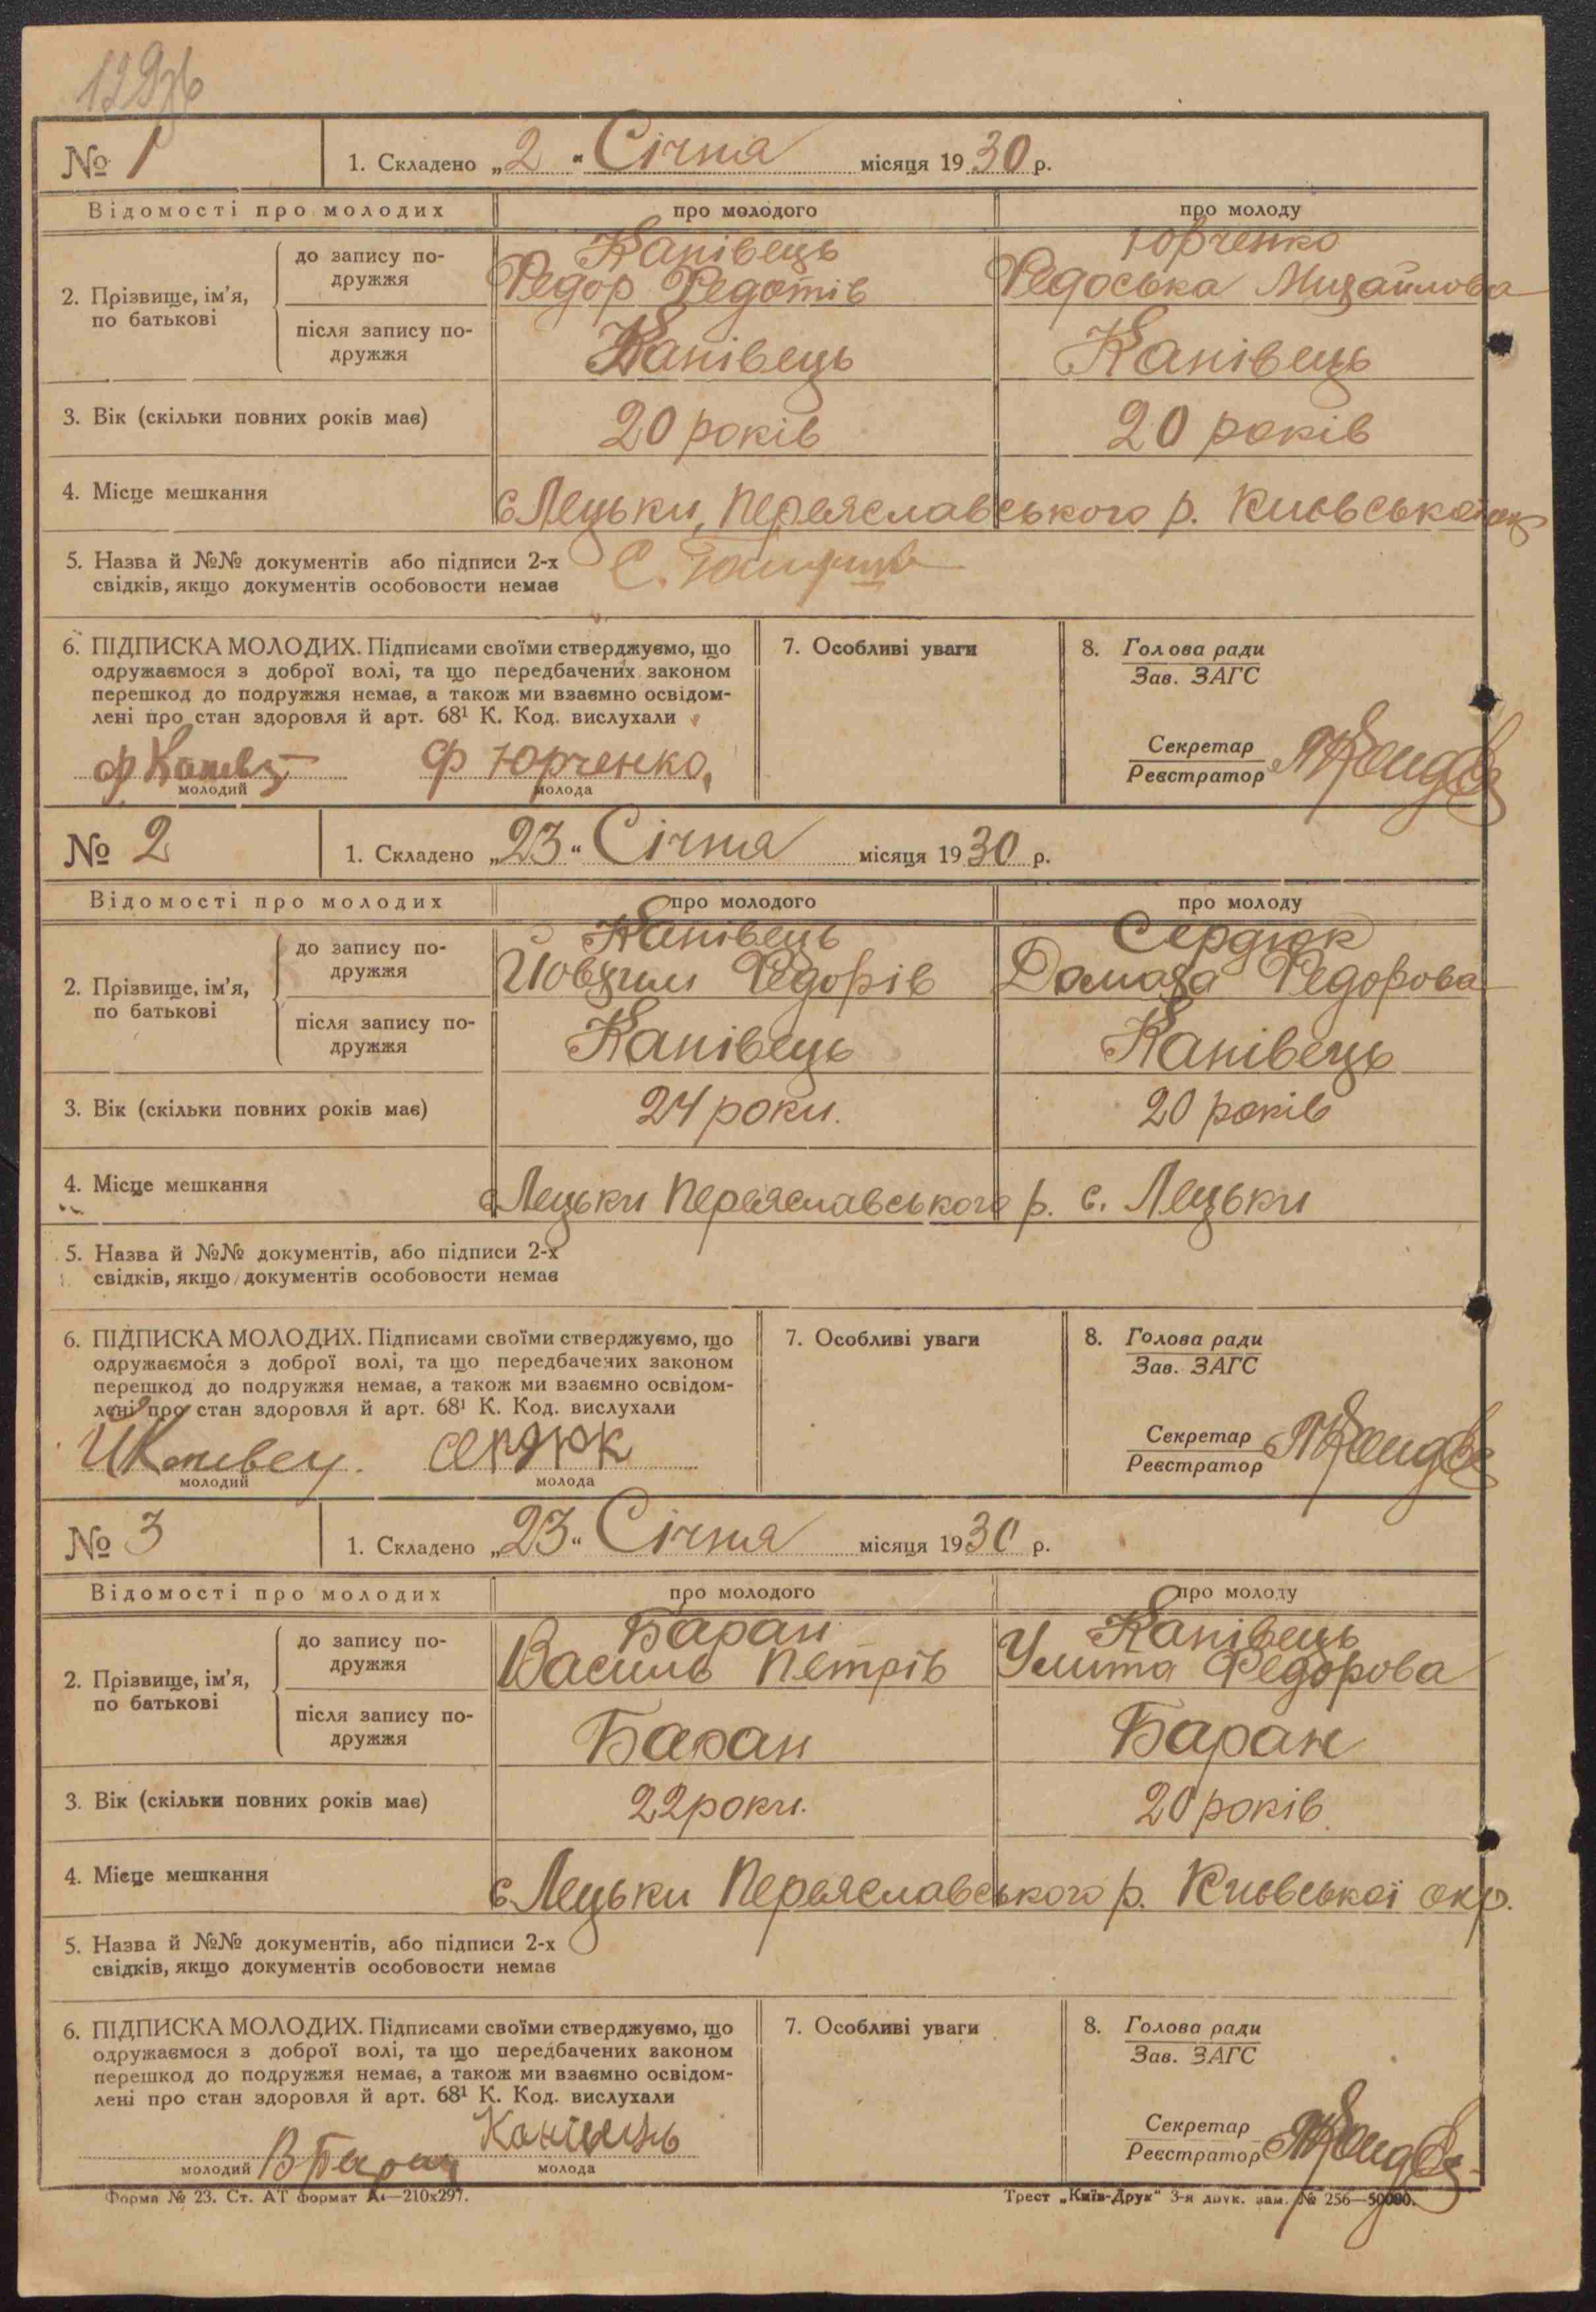 № 1
1. Складено „2“ Січня місяця 1930 р.
Відомості про молодих про молодого про молоду
2. Прізвище, ім'я, по батькові
до запису по-
дружжя
Канівець
Федор Федотів
Юрченко
Федоська Михайлова
після запису по-
дружжя
Канівець Канівець
3. Вік (скільки повних років має) 20 років 20 років
4. Місце мешкання с Лецьки, Переяславського р. Київської окр
5. Назва й №№ документів або підписи 2-х
свідків, якщо документів особовости немає
6. ПІДПИСКА МОЛОДИХ. Підписами своїми стверджуємо, що
одружаємося з доброї волі, та що передбачених законом
перешкод до подружжя немає, а також ми взаємно освідом-
лені про стан здоровля й арт. 68¹ К. Код. вислухали
Ф Юрченко
молодий молода
7. Особливі уваги
8. Голова ради
Зав. ЗАГС
Секретар
Реєстратор
№ 2
1. Складено „23“ Січня місяця 1930 р.
Відомості про молодих про молодого про молоду
2. Прізвище, ім'я, по батькові
до запису по-
дружжя
Канівець
Йовхим Федорів
Сердюк
Домаха Федорова
після запису по-
дружжя
Канівець Канівець
3. Вік (скільки повних років має) 24 роки. 20 років
4. Місце мешкання с Лецьки Переяславського р. с. Лецьки
5. Назва й №№ документів, або підписи 2-х
свідків, якщо документів особовости немає
6. ПІДПИСКА МОЛОДИХ. Підписами своїми стверджуємо, що
одружаємося з доброї волі, та що передбачених законом
перешкод до подружжя немає, а також ми взаємно освідом-
лені про стан здоровля й арт. 68¹ К. Код. вислухали
Сердюк
молодий молода
7. Особливі уваги
8. Голова ради
Зав. ЗАГС
Секретар
Реєстратор
№ 3
1. Складено „23“ Січня місяця 1930 р.
Відомості про молодих про молодого про молоду
2. Прізвище, ім'я, по батькові
до запису по-
дружжя
Баран
Василь Петрів
Канівець
Улита Федорова
після запису по-
дружжя
Баран Баран
3. Вік (скільки повних років має) 22 роки. 20 років.
4. Місце мешкання с. Лецьки Переяславського р. Київської окр.
5. Назва й №№ документів, або підписи 2-х
свідків, якщо документів особовости немає
6. ПІДПИСКА МОЛОДИХ. Підписами своїми стверджуємо, що
одружаємося з доброї волі, та що передбачених законом
перешкод до подружжя немає, а також ми взаємно освідом-
лені про стан здоровля й арт. 68¹ К. Код. вислухали
В Баран Канівець
молодий молода
7. Особливі уваги
8. Голова ради
Зав. ЗАГС
Секретар
Реєстратор
Форма № 23. Ст. АТ формат А4—210х297.
Трест „Київ-Друк“ 3-я друк. зам. № 256—50000.